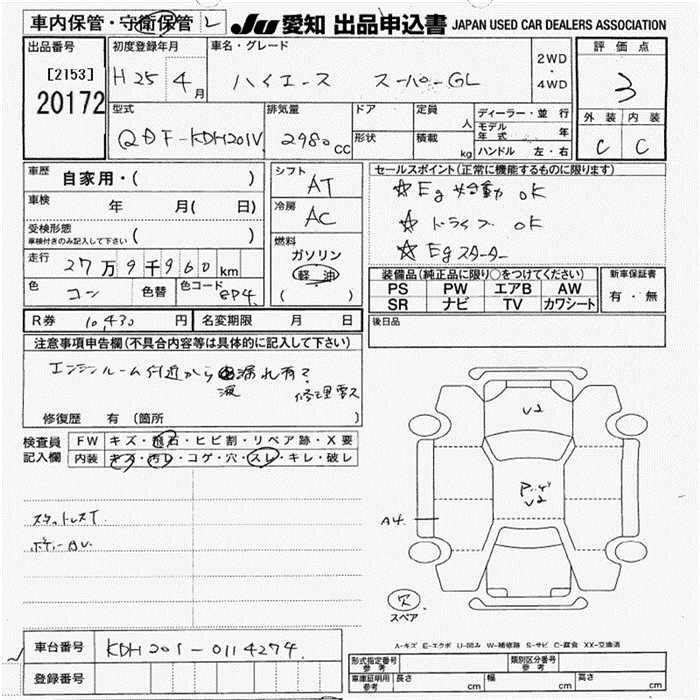 車内保管・守衛保管 レ JU 愛知 出品申込書 JAPAN USED CAR DEALERS ASSOCIATION
出品番号 初度登録年月 車名・グレード 2WD・4WD 評価点
[2153] H25 4月 ハイエース スーパーGL 3
20172
型式 排気量 ドア 定員 人 ディーラー・並行 外装 内装
QDF-KDH201V 2980cc 形状 積載 kg モデル年式 年 C C
ハンドル 左・右
車歴 自家用・( ) シフト AT セールスポイント(正常に機能するものに限ります)
☆ Eg 始動 OK
車検 年 月( 日) 冷房 AC ☆ ドライブ OK
受検形態 車検付きのみ記入して下さい ( ) ☆ Egスターター
走行 27万9千960km 燃料 ガソリン 軽油 ( )
装備品(純正品に限り○をつけてください) 新車保証書
色 コン 色替 色コード 8P4 PS PW エアB AW 有・無
SR ナビ TV カワシート
R券 10,430円 名変期限 月 日 後日品
注意事項申告欄(不具合内容等は具体的に記入して下さい)
エンジンルーム付近から 液 漏れ有? 修理要ス
修復歴 有(箇所 )
検査員記入欄 FW キズ・飛石・ヒビ割・リペア跡・X要
内装 キズ・汚レ・コゲ・穴・スレ・キレ・破レ
V2
V2
スタットレスT
A4
ボディーBU.
欠
スペア
A-キズ E-エクボ U-凹み W-補修跡 S-サビ C-腐食 XX-交換済
車台番号 KDH201-0114274
登録番号
形式指定番号 参考 類別区分番号 参考
車庫証明用 参考 長さ cm 幅 cm 高さ cm